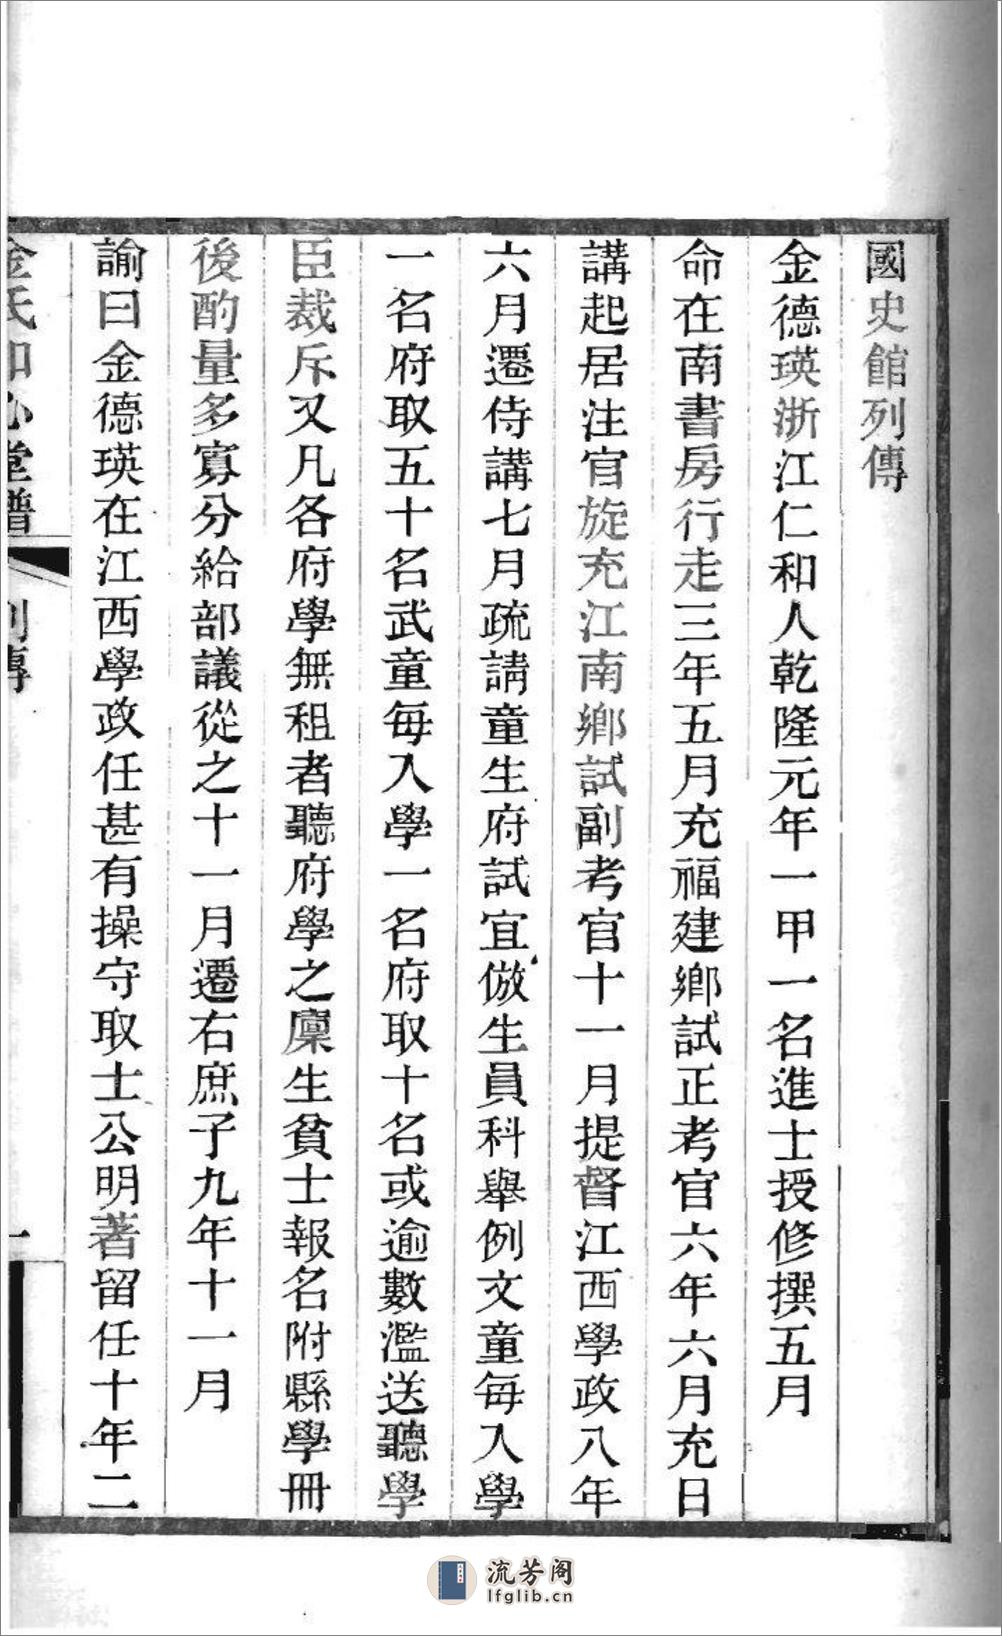 國史館列傳
金德瑛浙江仁和人乾隆元年一甲一名進士授修撰五月
命在南書房行走三年五月充福建鄉試正考官六年六月充日
講起居注官旋充江南鄉試副考官十一月提督江西學政八年
六月遷侍講七月疏請童生府試宜倣生員科舉例文童每入學
一名府取五十名武童每入學一名府取十名或逾數濫送聽學
臣裁斥又凡各府學無租者聽府學之廩生貧士報名附縣學冊
後酌量多寡分給部議從之十一月遷右庶子九年十一月
諭曰金德瑛在江西學政任甚有操守取士公明著留任十年二
金氏如心堂譜 列傳 一
流芳阁
lfglib.cn